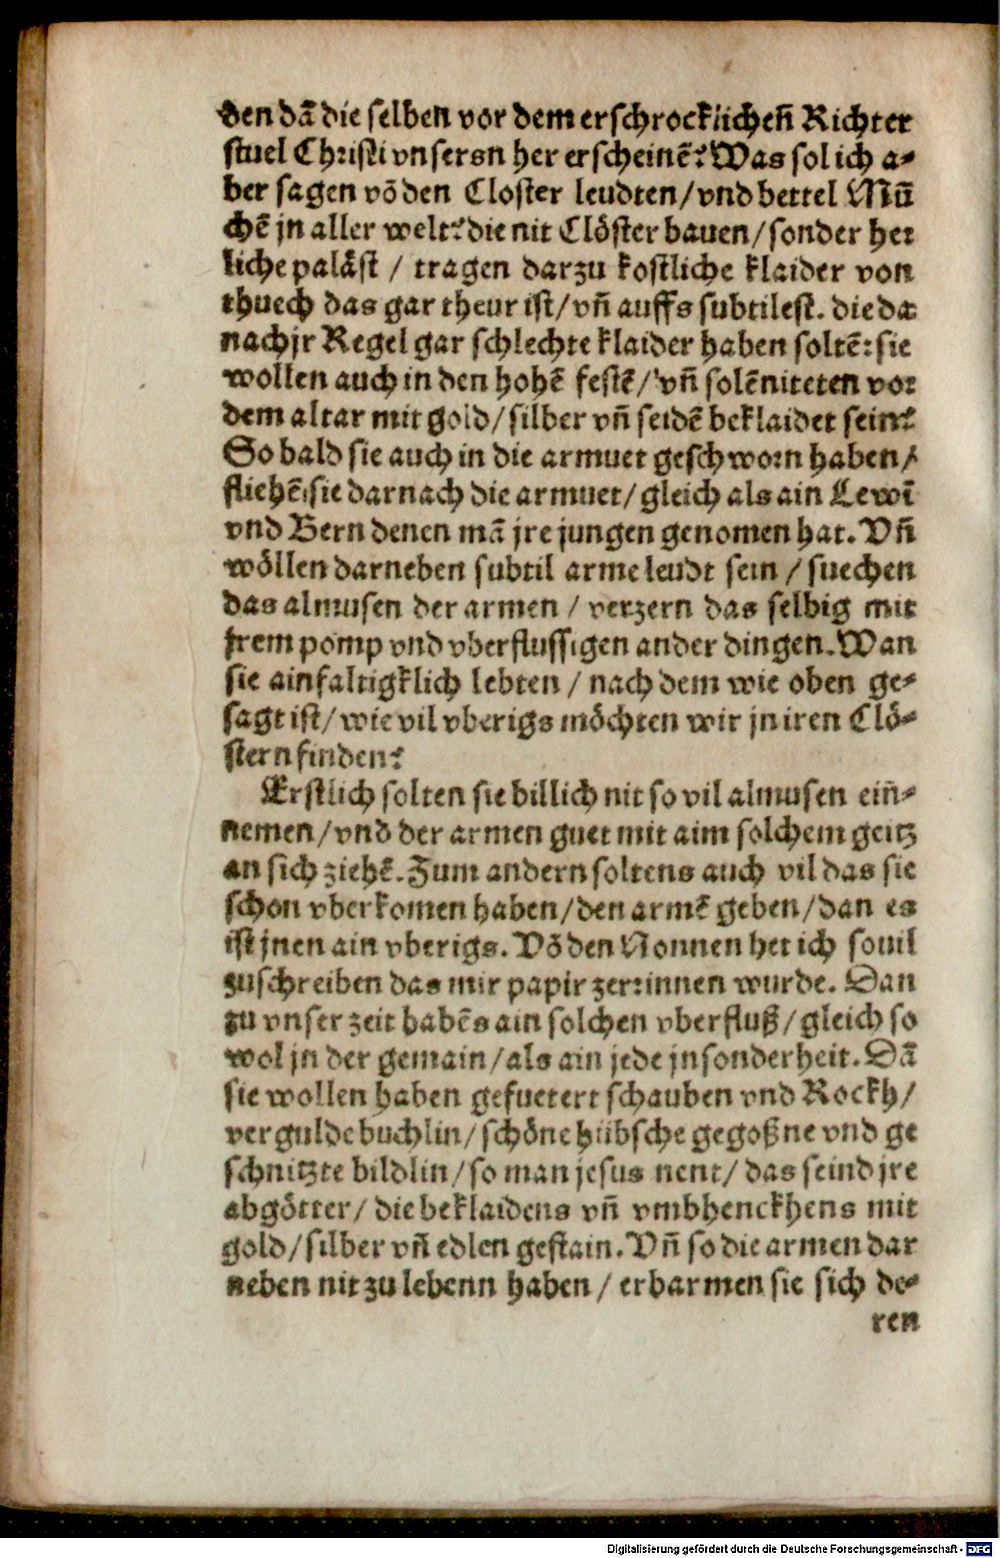 den dā die selben vor dem erschrocklichen̄ Richter
stuel Christi vnsersn her erscheinē? Was sol ich a-
ber sagen vō den Closter leudten/vnd bettel Mū
chē jn aller welt? die nit Clöster bauen/sonder her
liche paläst / tragen darzu kostliche klaider von
thuech das gar theur ist/vn̄ auffs subtilest. die da
nach jr Regel gar schlechte klaider haben soltē: sie
wollen auch in den hohē festē/ vn̄ solēniteten vor
dem altar mit gold/silber vn̄ seidē beklaidet sein?
So bald sie auch in die armuet geschworn haben/
fliehē sie darnach die armuet/gleich als ain Lewī
vnd Bern denen mā jre jungen genomen hat. Vn̄
wöllen darneben subtil arme leudt sein / suechen
das almusen der armen / verzern das selbig mit
jrem pomp vnd vberflussigen ander dingen. Wan
sie ainfaltigklich lebten / nach dem wie oben ge-
sagt ist/wie vil vberigs möchten wir jn iren Clö-
stern finden?
Erstlich solten sie billich nit so vil almusen ein̄-
nemen/vnd der armen guet mit aim solchem geitz
an sich ziehē. Zum andern soltens auch vil das sie
schon vberkomen haben/den armē geben/dan es
ist jnen ain vberigs. Vō den Nonnen het ich souil
zuschreiben das mir papir zerrinnen wurde. Dan
zu vnser zeit habēs ain solchen vberfluß/gleich so
wol jn der gemain/als ain jede jnsonderheit. Dā
sie wollen haben gefuetert schauben vnd Rockh/
vergulde buchlin/schöne hübsche gegoßne vnd ge
schnitzte bildlin/so man jesus nent/das seind jre
abgötter/ die beklaidens vn̄ vmbhenckhens mit
gold/silber vn̄ edlen gestain. Vn̄ so die armen dar
neben nit zu lebenn haben / erbarmen sie sich de-
ren
Digitalisierung gefördert durch die Deutsche Forschungsgemeinschaft - DFG